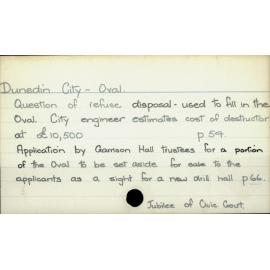 Dunedin City - Oval.
Question of refuse disposal - used to fill in the
Oval. City engineer estimates cost of destructor
at £10,500 p 54.
Application by Garrison Hall trustees for a portion
of the Oval to be set aside for sale to the
applicants as a sight for a new drill hall p66.
Jubilee of Civic Govt.